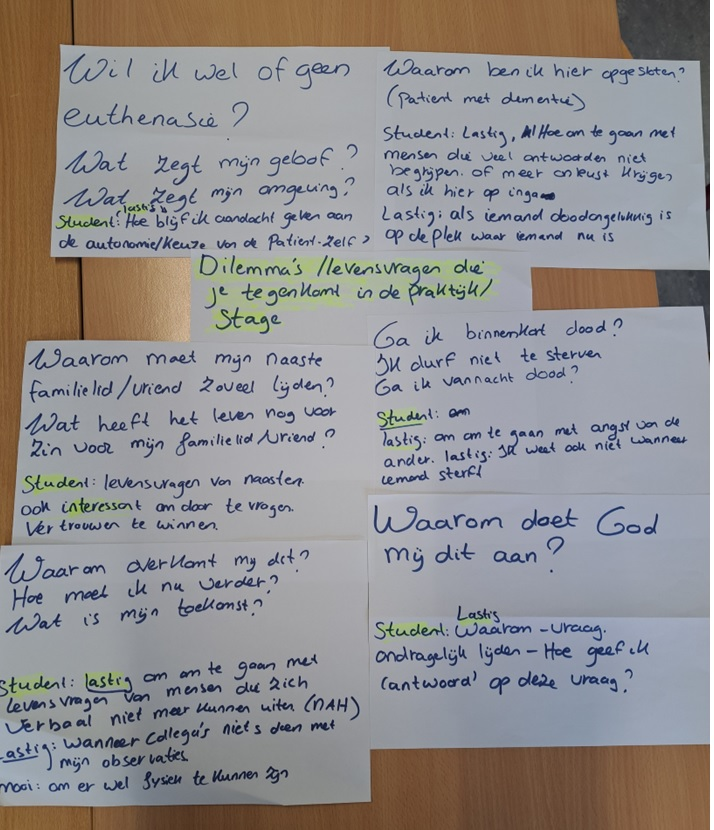 Wil ik wel of geen
euthenasie?
Wat zegt mijn geloof?
Wat zegt mijn omgeving?
lastig
Student: Hoe blijf ik aandacht geven aan
de autonomie/keuze van de Patient-zelf?
Waarom ben ik hier opgesloten?
(Patient met dementie)
Student: Lastig, Hoe om te gaan met
mensen die veel antwoorden niet
begrijpen. of meer onrust krijgen
als ik hier op inga
Lastig: als iemand doodongelukkig is
op de plek waar iemand nu is
Dilemma's /levensvragen die
je tegenkomt in de praktijk/
Stage
Waarom moet mijn naaste
familielid/vriend zoveel lijden?
Wat heeft het leven nog voor
zin voor mijn familielid/vriend?
Student: levensvragen van naasten.
ook interessant om door te vragen.
Vertrouwen te winnen.
Ga ik binnenkort dood?
Ik durf niet te sterven
Ga ik vannacht dood?
Student: om
lastig: om om te gaan met angst van de
ander. lastig: Ik weet ook niet wanneer
iemand sterft
Waarom overkomt mij dit?
Hoe moet ik nu verder?
Wat is mijn toekomst?
Student: lastig om om te gaan met
levensvragen van mensen die zich
verbaal niet meer kunnen uiten (NAH)
Lastig: wanneer collega's niets doen met
mijn observaties.
mooi: om er wel fysiek te kunnen zijn
Waarom doet God
mij dit aan?
Lastig
Student: Waarom-vraag.
ondragelijk lijden - Hoe geef ik
(antwoord' op deze vraag?